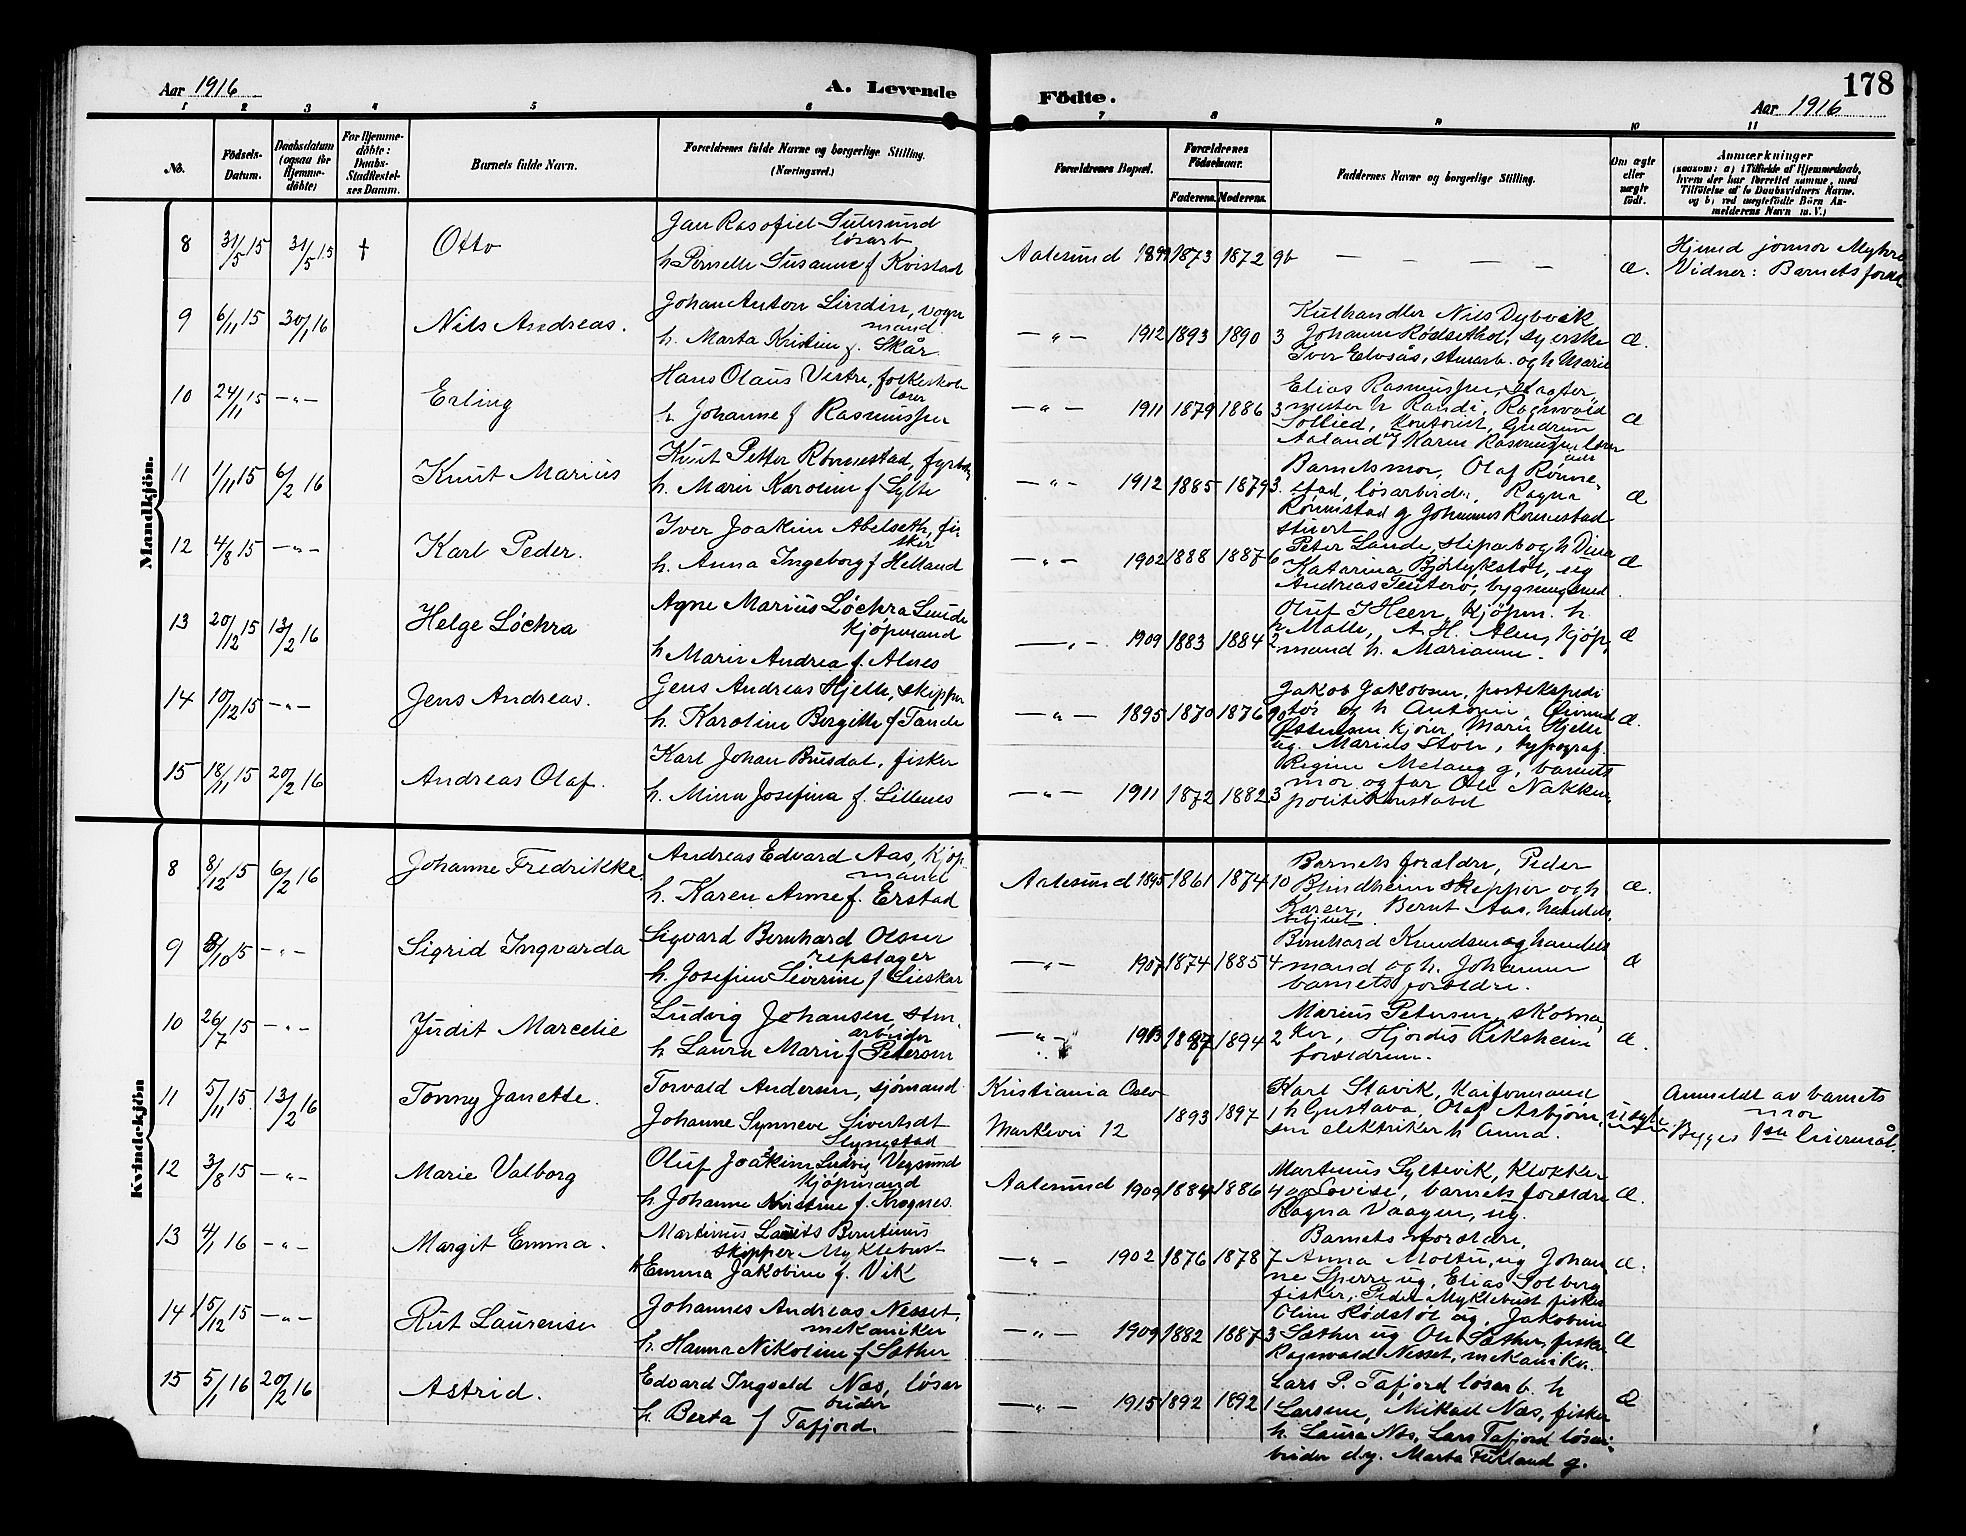 Aar 1916
A. Levende
Födte.
178
Aar 1916
1 2 3 4 5 6 7 8 9 10 11
No.
Födsels-
Datum.
Daabsdatum
(ogsaa for
Hjemme-
döbte)
For Hjemme-
döbte:
Daabs-
Stadfestel-
ses Datum.
Barnets fulde Navn.
Forældrenes fulde Navne og borgerlige Stilling.
(Næringsvei.)
Forældrenes Bopæl.
Forældrenes
Födselsaar.
Faderens.
Moderens.
Faddernes Navne og borgerlige Stilling.
Om ægte
eller
uægte
födt.
Anmærkninger
(saasom: a) i Tilfælde af Hjemmedaab,
hvem der har forrettet samme, med
Tilföielse af to Daabsvidners Navne.
og b) ved uægtefödte Börn An-
melderens Navn m.V.)
Mandkjön.
8 31/5 15 31/5 15 † Otto
løsarb
h Susanne f Kvistad
Aalesund 1899 1873 1872 9b — — — — æ.
Vidner: Barnets foræld
9 6/11 15 30/1 16 Nils Andreas.
Johan Anton Lindin, vogn
mand.
h. Marta Kristine f. Skår.
— " — 1912 1893 1890 3 æ.
Kulhandler Nils Dybvik
Johanne Rødsethol, syerske
og h Marie
10 24/11 15 — " — Erling
Hans Olaus Vestre, folkeskole
lærer
h. Johanne f Rasmussen
— " — 1911 1879 1886 3 æ
Elias Rasmussen, slagter
mester h Randi, Ragnvald
Sollied, kontorist, Gudrun
Aaland og Karen Rasmussen lærer
11 1/11 15 6/2 16 Knut Marius
Knut Petter Rönnestad, fyrbøt
h. Marie Karoline f Sylte
— " — 1912 1885 1879 3. æ
Barnets mor, Olaf Rønne-
stad, løsarbeider, Ragna
Rønnestad g Johannes Rønnestad
stuert
12 4/8 15 — " — Karl Peder.
Iver Joakim Abelseth, fi
sker
h. Anna Ingeborg f Helland
— " — 1902 1888 1887 6 æ
Peter Lande, skiparb og h Dina
Katarina Bjørlykstøl, ug
Andreas
13 20/12 15 13/2 16 Helge Löchra
Agne Marius Löchra Lunde
kjöpmand
h Marie Andrea f. Alnes
— " — 1909 1883 1884 2 æ
Oluf J Heen, kjöpm. h.
h Malle, A. H. Alnes, kjöp,
mand h. Marianne.
14 10/12 15 — " — Jens Andreas.
Jens Andreas Hjelle, skipper
h. Karoline Bergitte f Tande
— " — 1895 1870 1876 æ.
Jakob Jakobsen, postekspedi
tør og h Antonie,
Østensen kjører, Marie Hjelle
ug. Marius typograf.
15 18/11 15 20/2 16 Andreas Olaf.
Karl Johan Brusdal, fisker
h. Mina Josefina f. Lillenes
— " — 1911 1872 1882 3
Regine Melang g, barnets
mor og far Ole Nakken
politikonstabel
Kvindekjön
8 8/12 15 6/2 16 Johanne Fredrikke.
Andreas Edvard Aas, kjøp-
mand
h. Karen Anne f. Erstad
Aalesund 1895 1861 1874 10 æ.
Barnets forældre, Peder
Blindheim skipper og h
Karen, Bernt Aas, handels
betjent
9 8/10 15 — " — Sigrid Ingvarda
Sigvard Bernhard Olsen
repslager
h. Josefine Severine f Lieskar
— " — 1907 1874 1885 4 æ
Bernhard Knudsen og handels
mand og h. Johanne
barnets forældre.
10 26/7 15 — " — Judit Marcelie
Ludvig Johansen, sten-
arbeider
h Laura Marie f Petersen
— " — 1913 1887 1894 2 æ.
Marius Petersen, skoma,
ker, Hjördis Riksheim
forældrene.
11 5/11 15. 13/2 16 Tonny Janette.
Torvald Andersen, sjömand
Johanne Synneve Sivertsdt
Slyngstad
Kristiania Oslo
Markvei 12
1893 1897 1 uegte
Karl Stavik, kaiformand
h Gustava, Olaf Asbjørn,
sen elektriker h Anna.
Anmeldt av barnets
mor
Begges 1ste leiermål.
12 3/8 15 — " — Marie Valborg
Oluf Joakim Ludvig Vegsund
kjöpmand
h Johanne Kristine f. Krognes.
Aalesund 1909 1884 1886 4 æ.
Martinus Syltevik, klokker
og Lovise, barnets forældre
Ragna Vaagen, ug.
13 4/1 16 — " — Margit Emma.
Martinus Laurits Berntinus
skipper Myklebust
h Emma Jakobine f. Vik
— " — 1902 1876 1878 7 æ.
Barnets forældre,
Anna Moltu, ug Johan
ne Sperre ug, Elias Solberg
fisker, Peder Myklebust fisker
14 15/12 15 — " — Rut Laurense
Johannes Andreas Nesset,
mekaniker
h. Hanna Nikoline f Sæther
— " — 1909 1882 1887 3 æ
Oline Rødstøl ug, Jakobine
Sæther ug Ole Sæther, fisker
Ragnvald Nesset, mekaniker.
15 5/1 16 20/2 16 Astrid.
Edvard Ingvald Næs, løsar
beider
h. Berta f Tafjord.
— " — 1915 1892 1892 1 æ
Lars P. Tafjord løsarb. h
Larsine, Mikael Næs, fisker
h. Laura Næs, Lars Tafjord løsar-
beider d.y. Marta g.